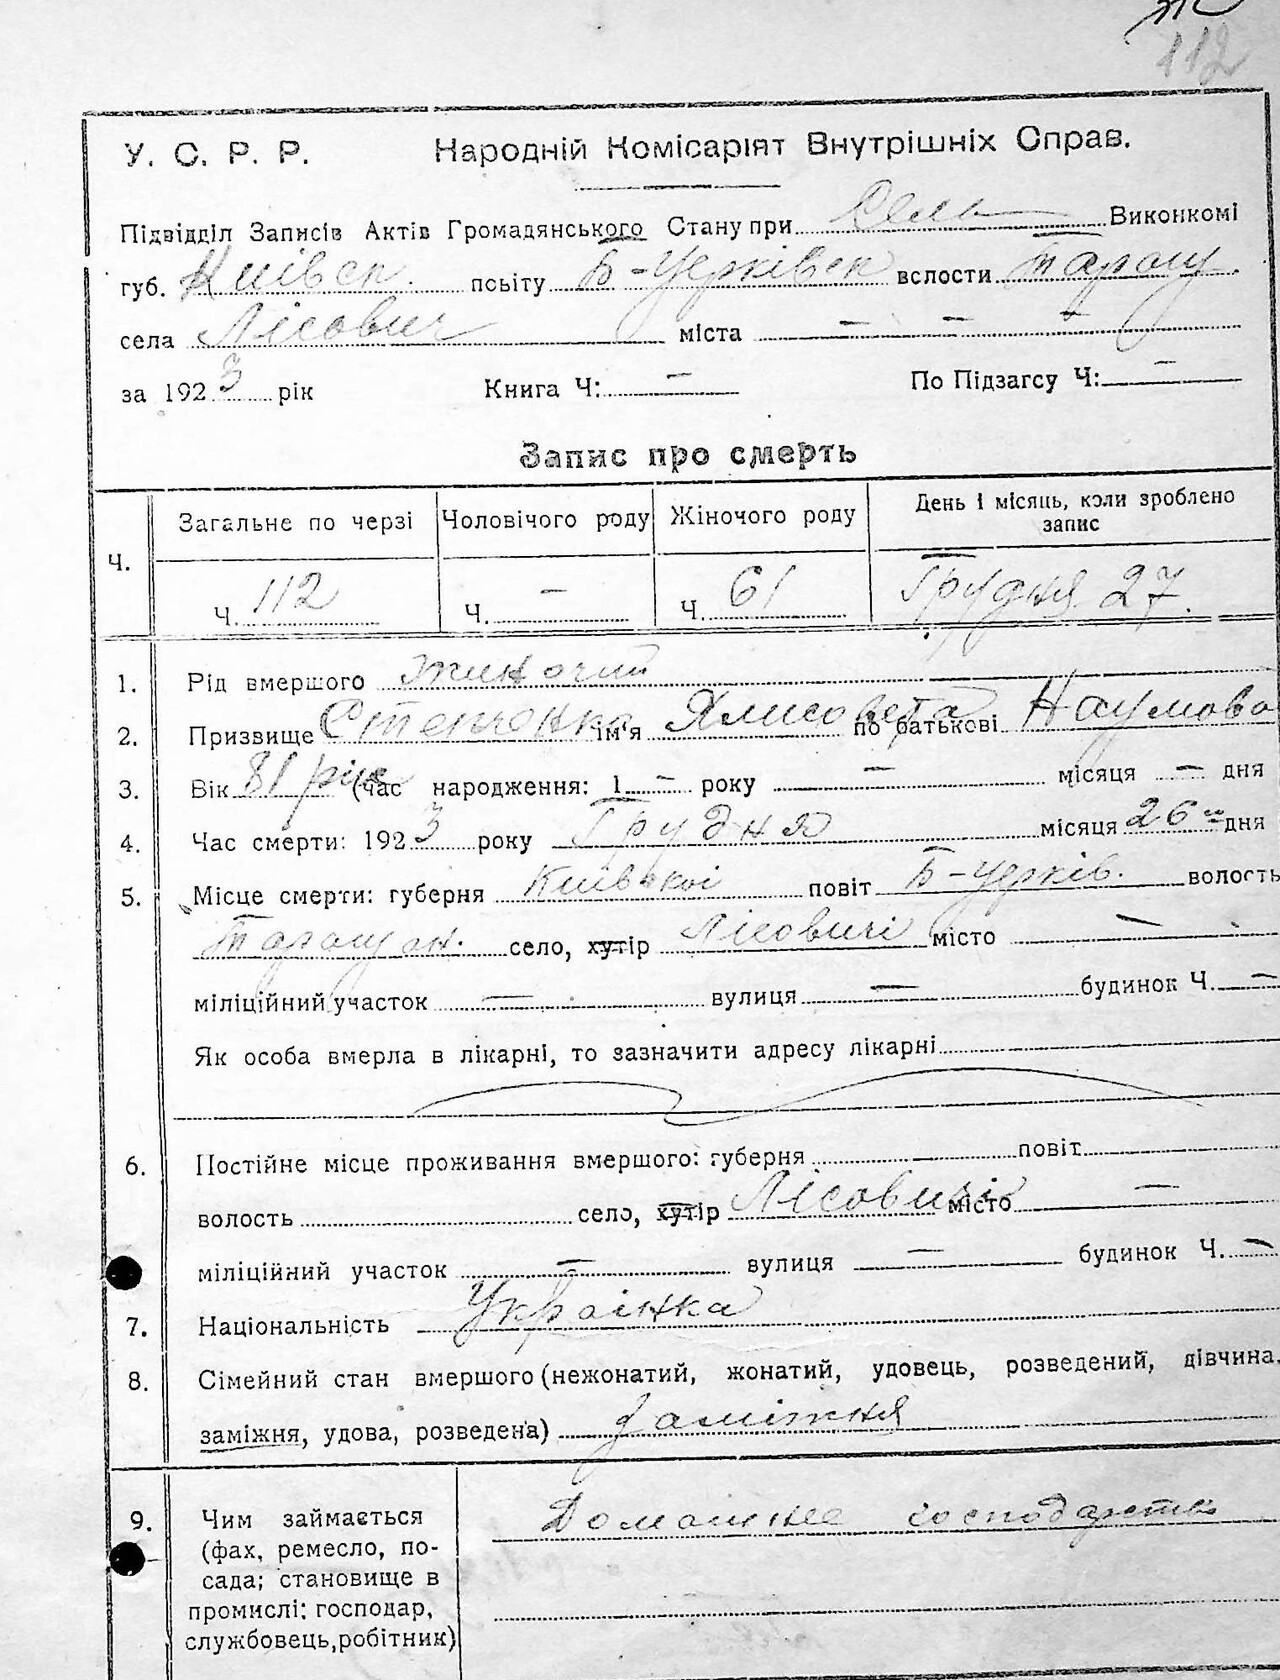 112
У. С. Р. Р. Народній Комісаріят Внутрішніх Справ.
Підвідділ Записів Актів Громадянського Стану при Сель Виконкомі
губ. Київск. псьіту Б-Церківск вслости Таращ.
села Лісович міста — — —
за 1923 рік Книга Ч: — По Підзагсу Ч: —
Запис про смерть
Ч. Загальне по черзі Чоловічого роду Жіночого роду День і місяць, коли зроблено запис
Ч. 112 Ч. — Ч. 61 Грудня 27.
1. Рід вмершого жиночий
2. Призвище Степченко ім'я Ялисовета по батькові Наумова
3. Вік 81 рік (час народження: 1 — року — місяця — дня
4. Час смерти: 1923 року Грудня місяця 26 дня
5. Місце смерти: губерня Київської повіт Б-Церків. волость
Таращан. село, хутір Лісовичі місто —
міліційний участок — вулиця — будинок Ч. —
Як особа вмерла в лікарні, то зазначити адресу лікарні
6. Постійне місце проживання вмершого: губерня повіт
волость село, хутір Лісовичі місто —
міліційний участок — вулиця — будинок Ч. —
7. Національність Українка
8. Сімейний стан вмершого (нежонатий, жонатий, удовець, розведений, дівчина,
заміжня, удова, розведена) Заміжня
9. Чим займається Домашнє господарство
(фах, ремесло, по-
сада; становище в
промислі: господар,
службовець, робітник)